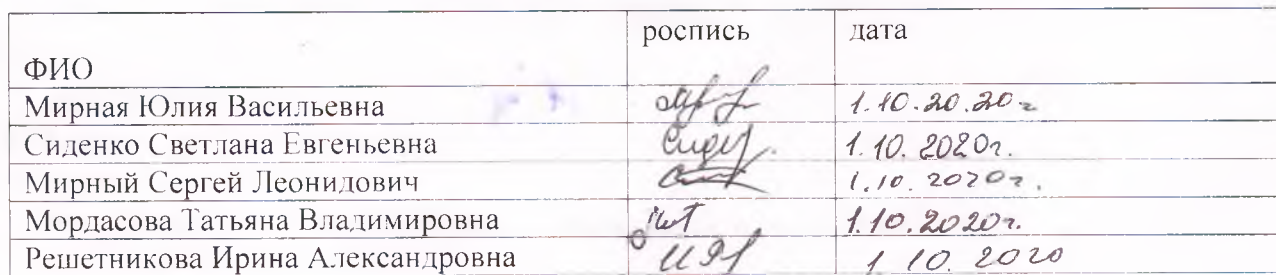 роспись дата
ФИО
Мирная Юлия Васильевна 1.10.20.20г
Сиденко Светлана Евгеньевна 1.10.2020г.
Мирный Сергей Леонидович 1.10.2020г.
Мордасова Татьяна Владимировна 1.10.2020г.
Решетникова Ирина Александровна 1 10. 2020